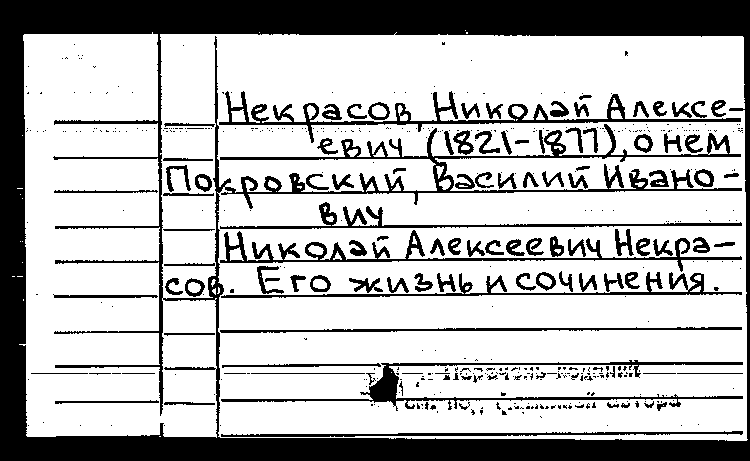 Некрасов, Николай Алексе-
евич (1821-1877), о нем
Покровский, Василий Ивано-
вич
Николай Алексеевич Некра-
сов. Его жизнь и сочинения.
Перечень изданий
см. под фамилией автора